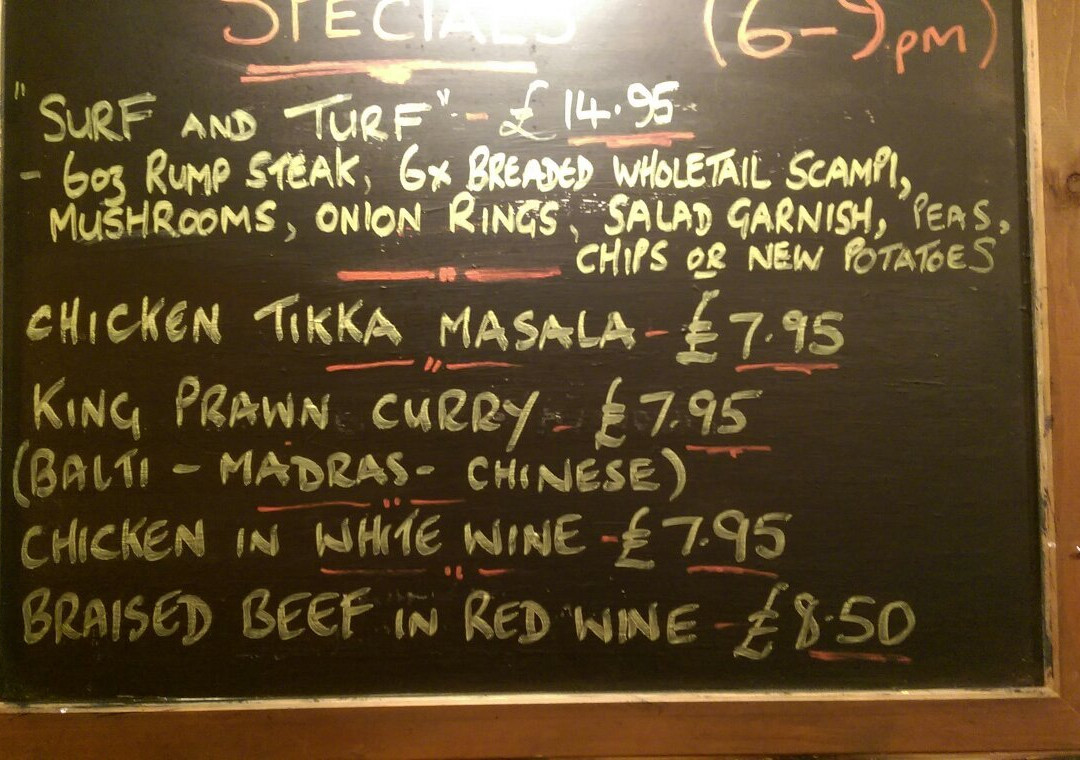 SPECIALS (6-9pm)
"SURF AND TURF" - £14.95
- 6oz RUMP STEAK, 6x BREADED WHOLETAIL SCAMPI,
MUSHROOMS, ONION RINGS, SALAD GARNISH, PEAS,
CHIPS OR NEW POTATOES
CHICKEN TIKKA MASALA - £7.95
KING PRAWN CURRY - £7.95
(BALTI - MADRAS - CHINESE)
CHICKEN IN WHITE WINE - £7.95
BRAISED BEEF IN RED WINE - £8.50